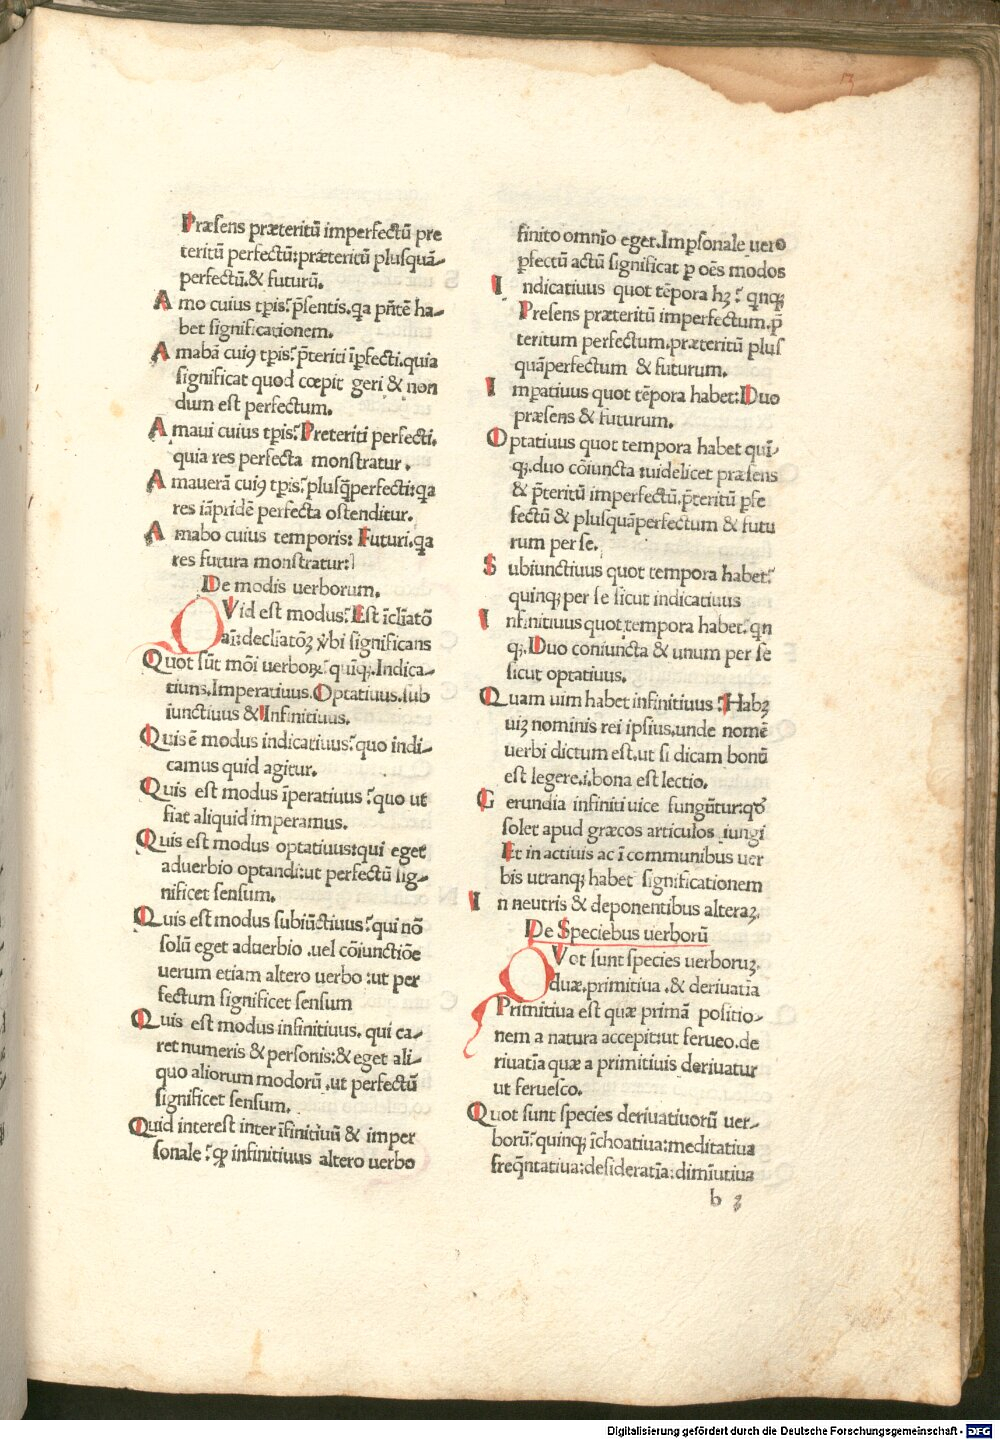 13
Præsens præteritū imperfectū pre
teritū perfectū:præteritū plusquā-
perfectū.& futurū.
A mo cuius tp̄is? p̄sentis.qa pn̄tē ha-
bet significationem.
A mabā cuiꝯ tp̄is? p̄teriti īpfecti.quia
significat quod cœpit geri & non
dum est perfectum.
A maui cuius tp̄is? Preteriti perfecti.
quia res perfecta monstratur.
A mauerā cuiꝯ tp̄is? plusq̄perfecti:qa
res iāpridē perfecta ostenditur.
A mabo cuius temporis: Futuri.qa
res futura monstratur:
De modis uerborum.
QVid est modus? Est īcliatō
ai: decliatōꝫ ỽbi significans
Quot sūt mōi uerboꝝ? quīqꝫ.Indica-
tiuus.Imperatiuus.Optatiuus.sub
iunctiuus & Infinitiuus.
Quis ē modus indicatiuus? quo indi-
camus quid agitur.
Quis est modus īperatiuus? quo ut
fiat aliquid imperamus.
Quis est modus optatiuus:qui eget
aduerbio optandi:ut perfectū sig-
nificet sensum.
Quis est modus subiūctiuus? qui nō
solū eget aduerbio .uel cōiunctiōe
uerum etiam altero uerbo :ut per
fectum significet sensum
Quis est modus infinitiuus. qui ca-
ret numeris & personis:& eget ali-
quo aliorum modorū .ut perfectū
significet sensum.
Quid interest inter īfinitiuū & imper
sonale? ꝙ infinitiuus altero uerbo
finito omnīo eget.Impsonale uero
pfectū actū significat ꝑ oēs modos
I ndicatiuus quot tēpora hꝫ? qnqꝫ
Presens præteritū imperfectum.p̄
teritum perfectum.præteritū plus
quāperfectum & futurum.
I mpatiuus quot tēpora habet:Duo
præsens & futurum.
Optatiuus quot tempora habet quī-
qꝫ.duo cōiuncta :uidelicet præsens
& p̄teritū imperfectū.p̄teritū pfe
fectū & plusquāperfectum & futu
rum per se.
S ubiunctiuus quot tempora habet?
quinqꝫ per se sicut indicatiuus
I nfinitiuus quot tempora habet? qn
qꝫ. Duo coniuncta & unum per se
sicut optatiuus.
Quam uim habet infinitiuus? Habꝫ
uiꝫ nominis rei ipsius.unde nomē
uerbi dictum est.ut si dicam bonū
est legere.i.bona est lectio.
G erundia infiniti uice fungūtur:qđ
solet apud græcos articulos iungi
Et in actiuis ac ī communibus uer
bis utranqꝫ habet significationem
I n neutris & deponentibus alteraꝫ.
De Speciebus uerborū
QVot sunt species uerboruꝫ.
duæ.primitiua .& deriuatīa
Primitiua est quæ primā positio-
nem a natura accepit:ut ferueo.de
riuatīa quæ a primitiuis deriuatur
ut feruesco.
Quot sunt species deriuatiuorū uer-
borū? quinqꝫ īchoatiua:meditatiua
freq̄ntatiua:desideratīa:dimīutiua
b 3
Digitalisierung gefördert durch die Deutsche Forschungsgemeinschaft - DFG